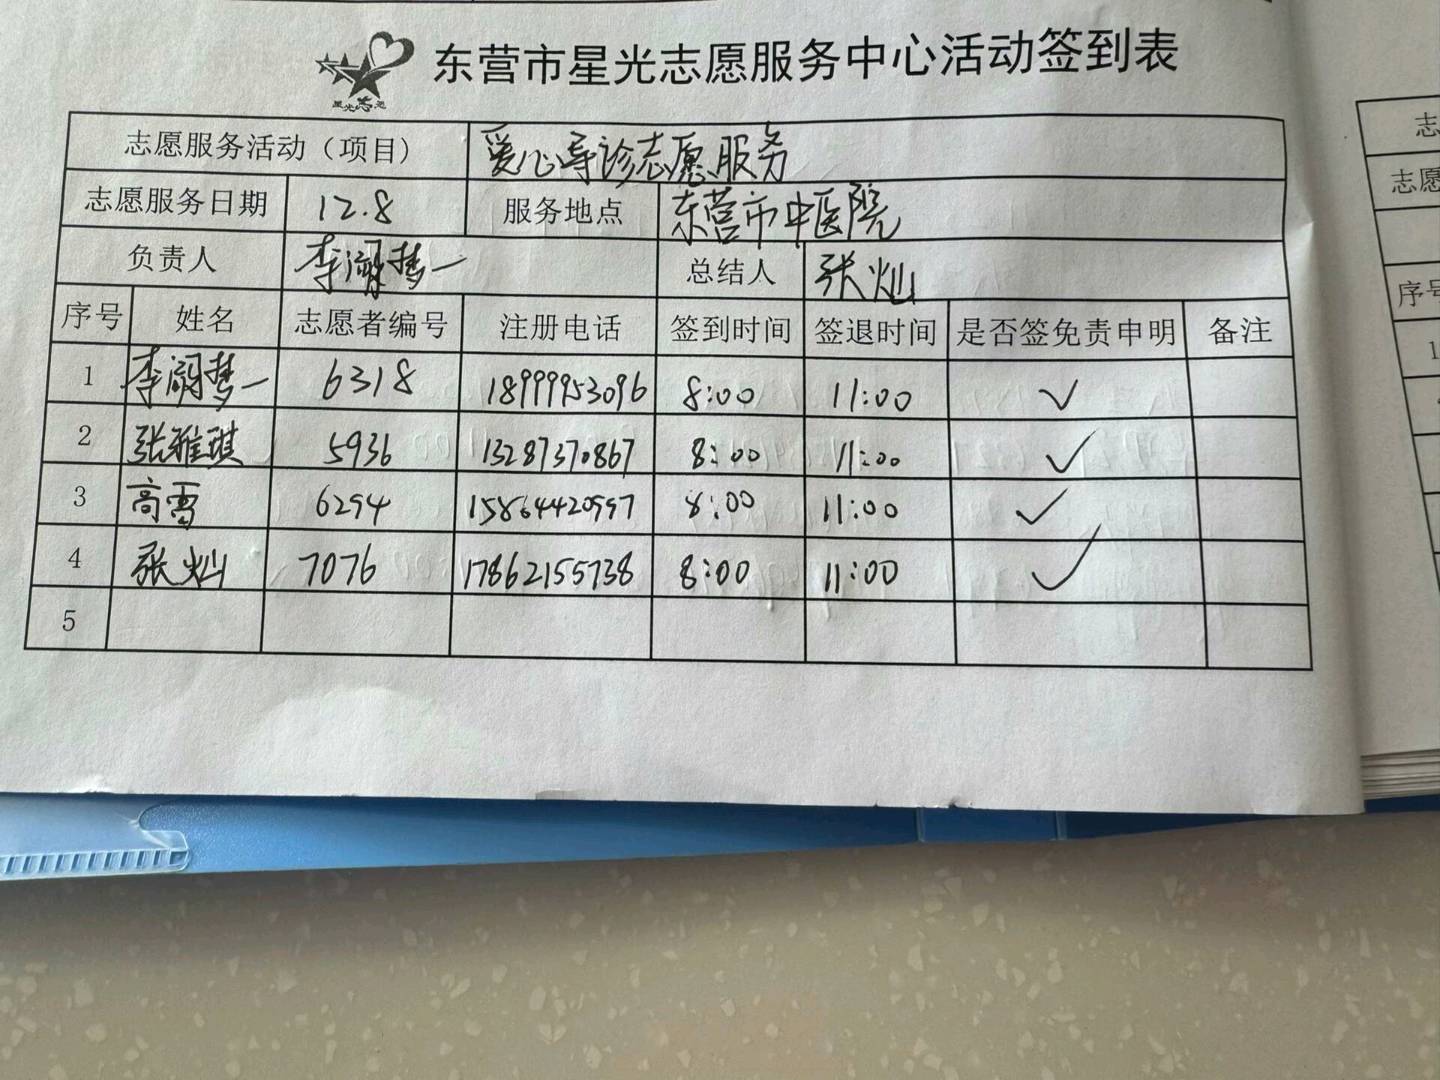 东营市星光志愿服务中心活动签到表
星光志愿
志愿服务活动（项目） 爱心导诊志愿服务
志愿服务日期 12.8 服务地点 东营市中医院
负责人 李 梦一 总结人 张灿
序号 姓名 志愿者编号 注册电话 签到时间 签退时间 是否签免责申明 备注
1 李 梦一 6318 18999953096 8:00 11:00 ✓
2 张雅琪 5936 13287370867 8:00 11:00 ✓
3 高雪 6294 8:00 11:00 ✓
4 张灿 7076 17862155738 8:00 11:00 ✓
5
志
志愿
序号
1